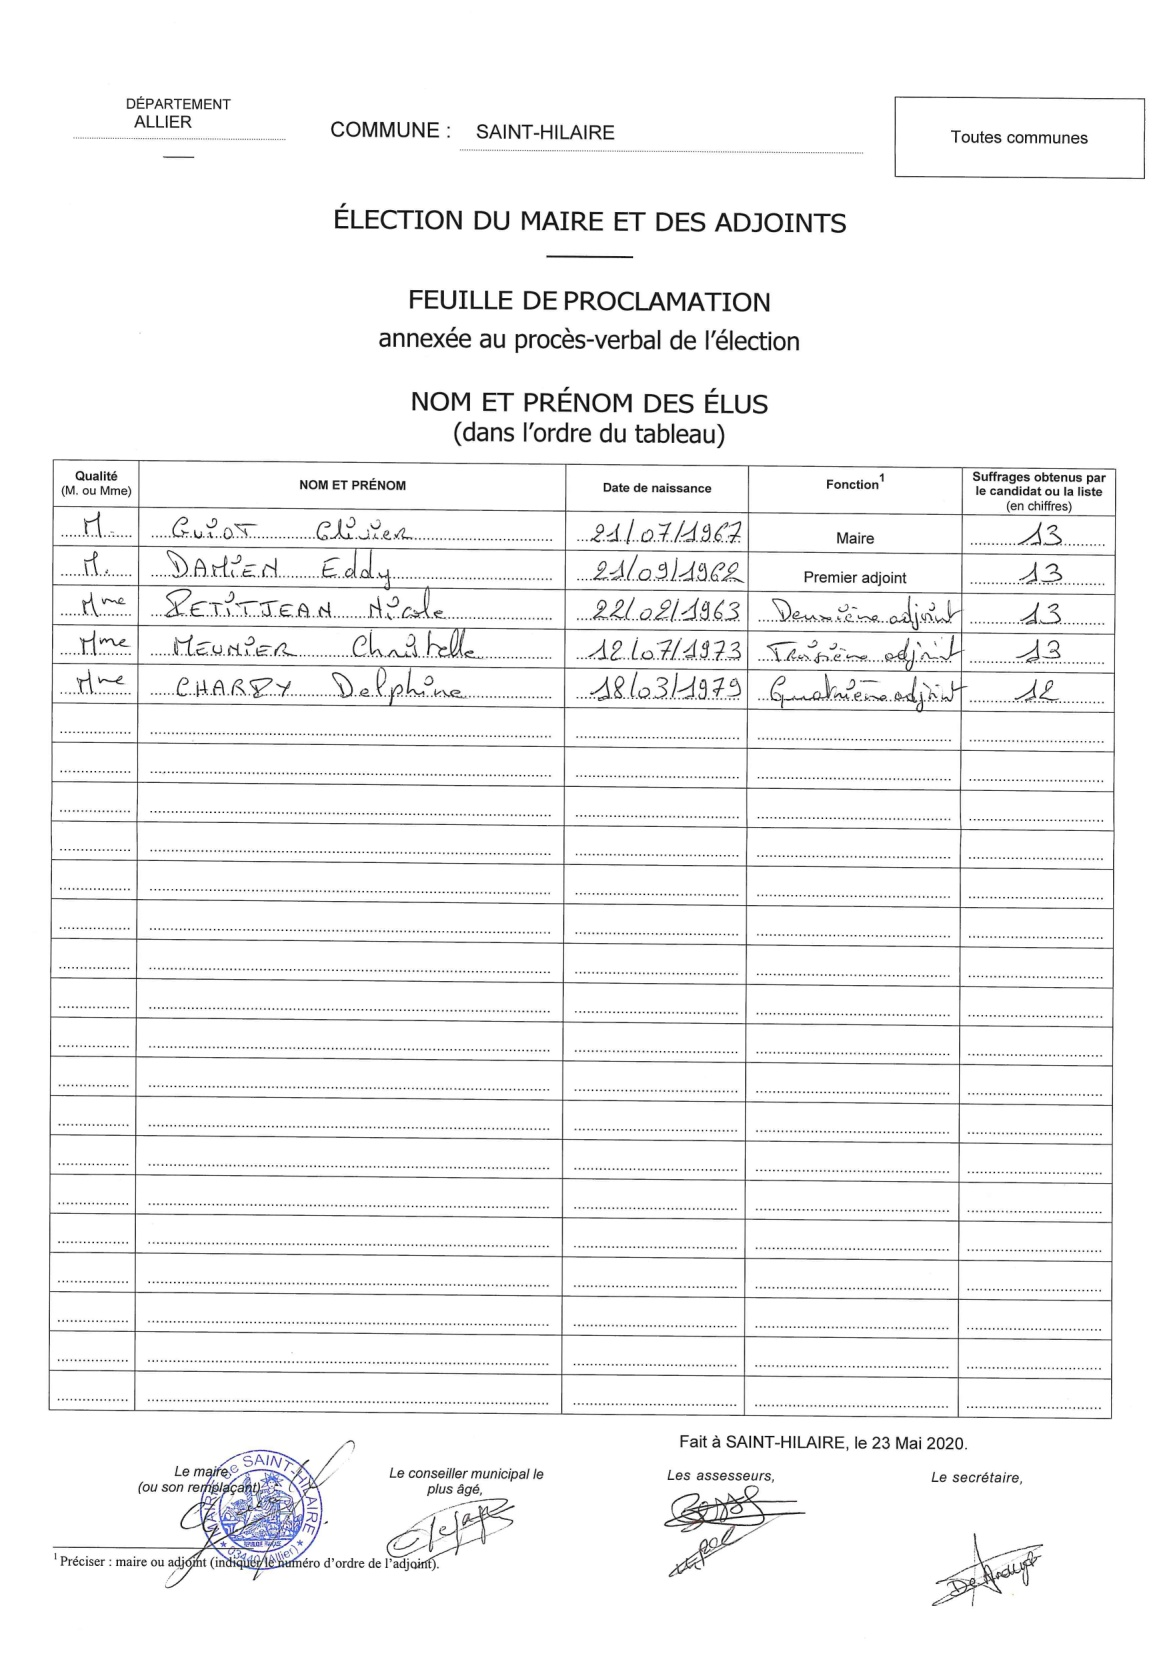 DÉPARTEMENT
ALLIER
COMMUNE : SAINT-HILAIRE
Toutes communes
ÉLECTION DU MAIRE ET DES ADJOINTS
FEUILLE DE PROCLAMATION
annexée au procès-verbal de l'élection
NOM ET PRÉNOM DES ÉLUS
(dans l'ordre du tableau)
Qualité (M. ou Mme) NOM ET PRÉNOM Date de naissance Fonction1 Suffrages obtenus par le candidat ou la liste (en chiffres)
M. GUIOT Olivier 21/07/1967 Maire 13
M. DAMIEN Eddy 21/09/1962 Premier adjoint 13
Mme PETITJEAN Nicole 22/02/1963 Deuxième adjoint 13
Mme MEUNIER Christelle 12/07/1973 Troisième adjoint 13
Mme CHARRY Delphine 18/03/1979 Quatrième adjoint 12
Fait à SAINT-HILAIRE, le 23 Mai 2020.
Le maire
(ou son remplaçant),
Le conseiller municipal le
plus âgé,
Les assesseurs,
Le secrétaire,
MAIRIE de SAINT-HILAIRE
RÉPUBLIQUE FRANÇAISE
03440 (Allier)
1 Préciser : maire ou adjoint (indiquer le numéro d'ordre de l'adjoint).